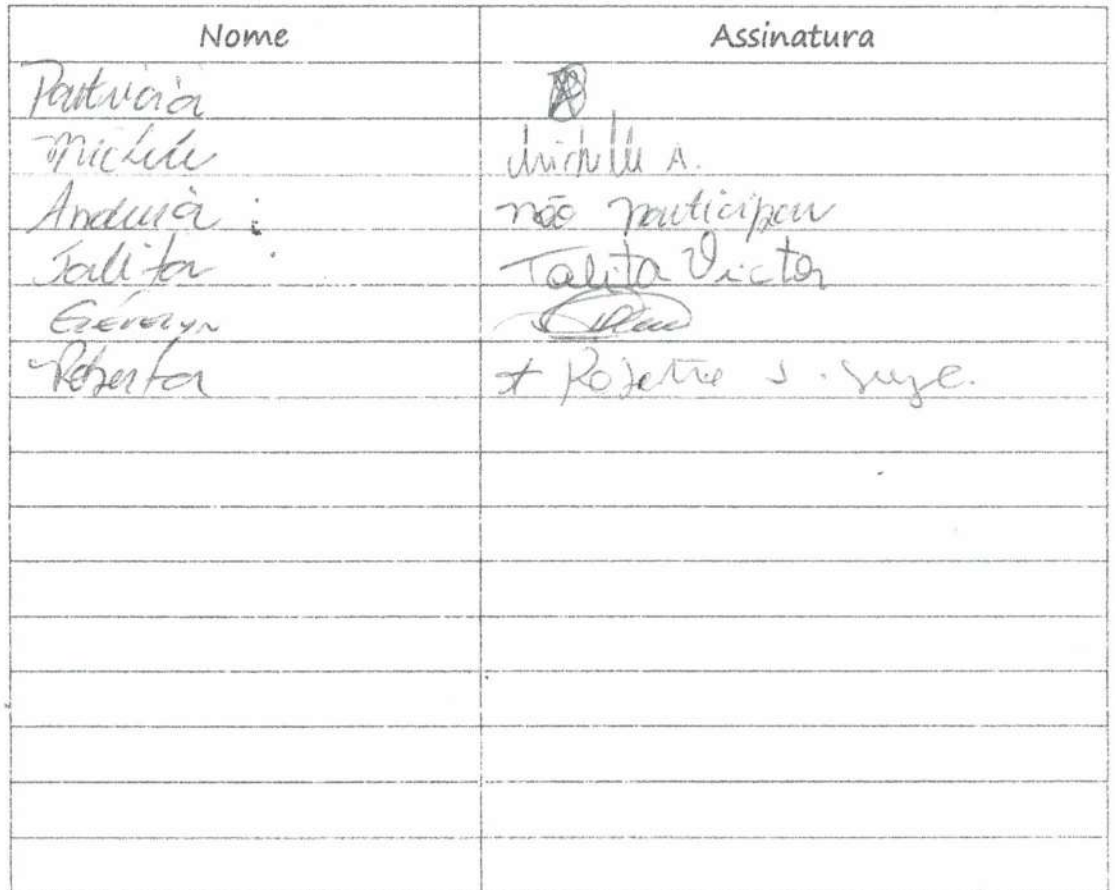 Nome Assinatura
Patrícia
Michele Michelle A.
Andreia não participou
Talita Talita Victor
Roberta